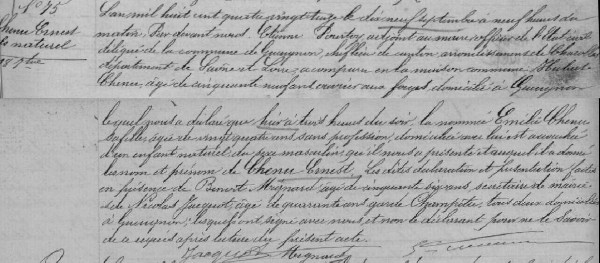 No 75
Chenu Ernest
naturel
19 7bre
L'an mil huit cent quatre vingt onze le dix neuf septembre à neuf heures du
matin, Par devant nous, Etienne adjoint au maire officier de l'état civil
délégué de la commune de Gueugnon, chef lieu de canton, arrondissement de Charolles
département de Saône et Loire, a comparu en la maison commune Hubert
Chenu, âgé de cinquante neuf ans ouvrier aux forges domicilié à Gueugnon
lequel nous a déclaré que hier à trois heures du soir, la nommée Emilie Chenu
sa fille, âgée de vingt quatre ans, sans profession, domiciliée avec lui est accouchée
d'un enfant naturel du sexe masculin qu'il nous a présenté et auquel il a donné
les nom et prénom de Chenu Ernest. Les dites déclaration et présentation faites
en présence de Benoît Mignard âgé de cinquante six ans, secrétaire de mairie
et de Nicolas Jacquot, âgé de quarante ans garde champêtre, tous deux domiciliés
à Gueugnon; lesquels ont signé avec nous et non le déclarant pour ne le savoir
de ce requis après lecture du présent acte.
Jacquot Mignard